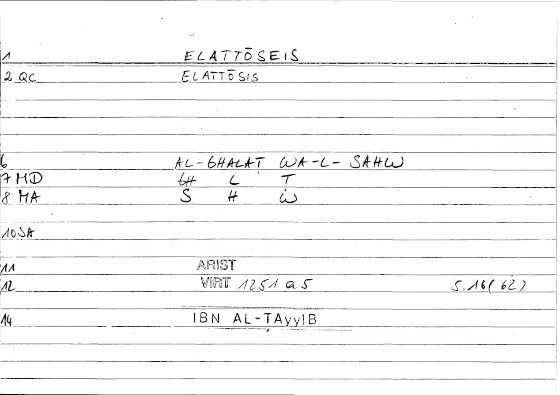 1 ELATTŌSEIS
2 QC ELATTŌSIS
6 AL-GHALAṬ WA-L-SAHW
7 MD GH L Ṭ
8 MA S H W
10 SA
11 ARIST
12 VIRT 1251 a5 S.16(62)
14 IBN AL-TAyyIB